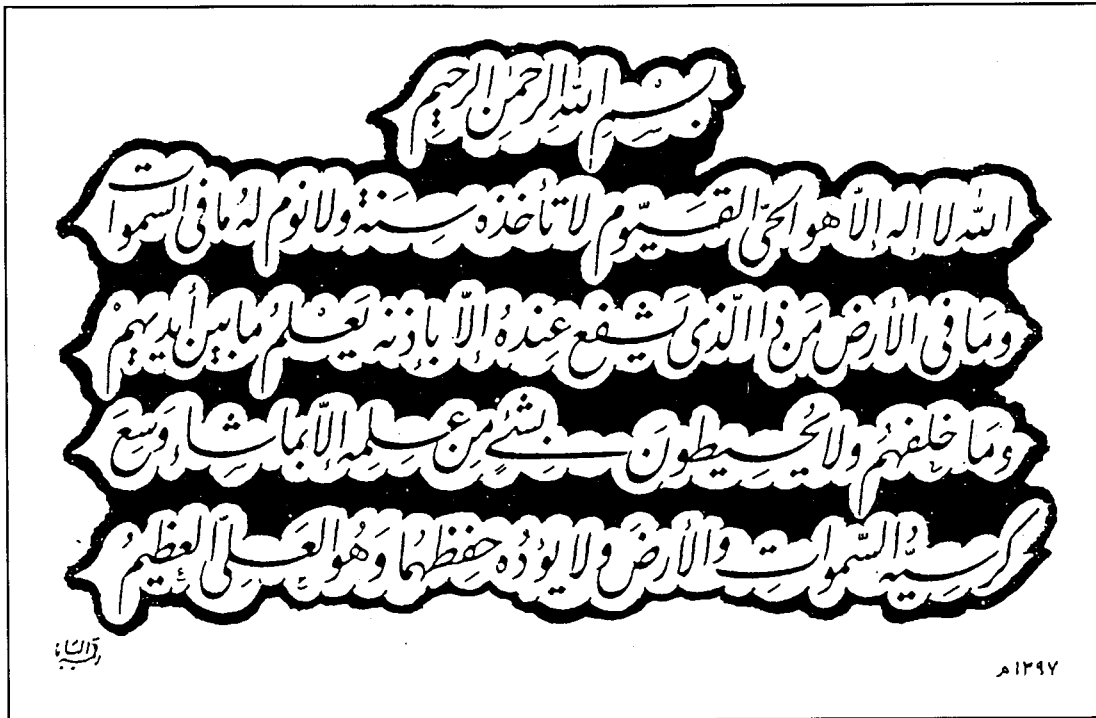 بسم الله الرحمن الرحيم
الله لا إله إلا هو الحي القيوم لا تأخذه سنة ولا نوم له ما في السموات
وما في الأرض من ذا الذي يشفع عنده إلا بإذنه يعلم ما بين أيديهم
وما خلفهم ولا يحيطون بشئ من علمه إلا بما شاء وسع
كرسيه السموات والأرض ولا يوده حفظهما وهو العلي العظيم
١٣٩٧م